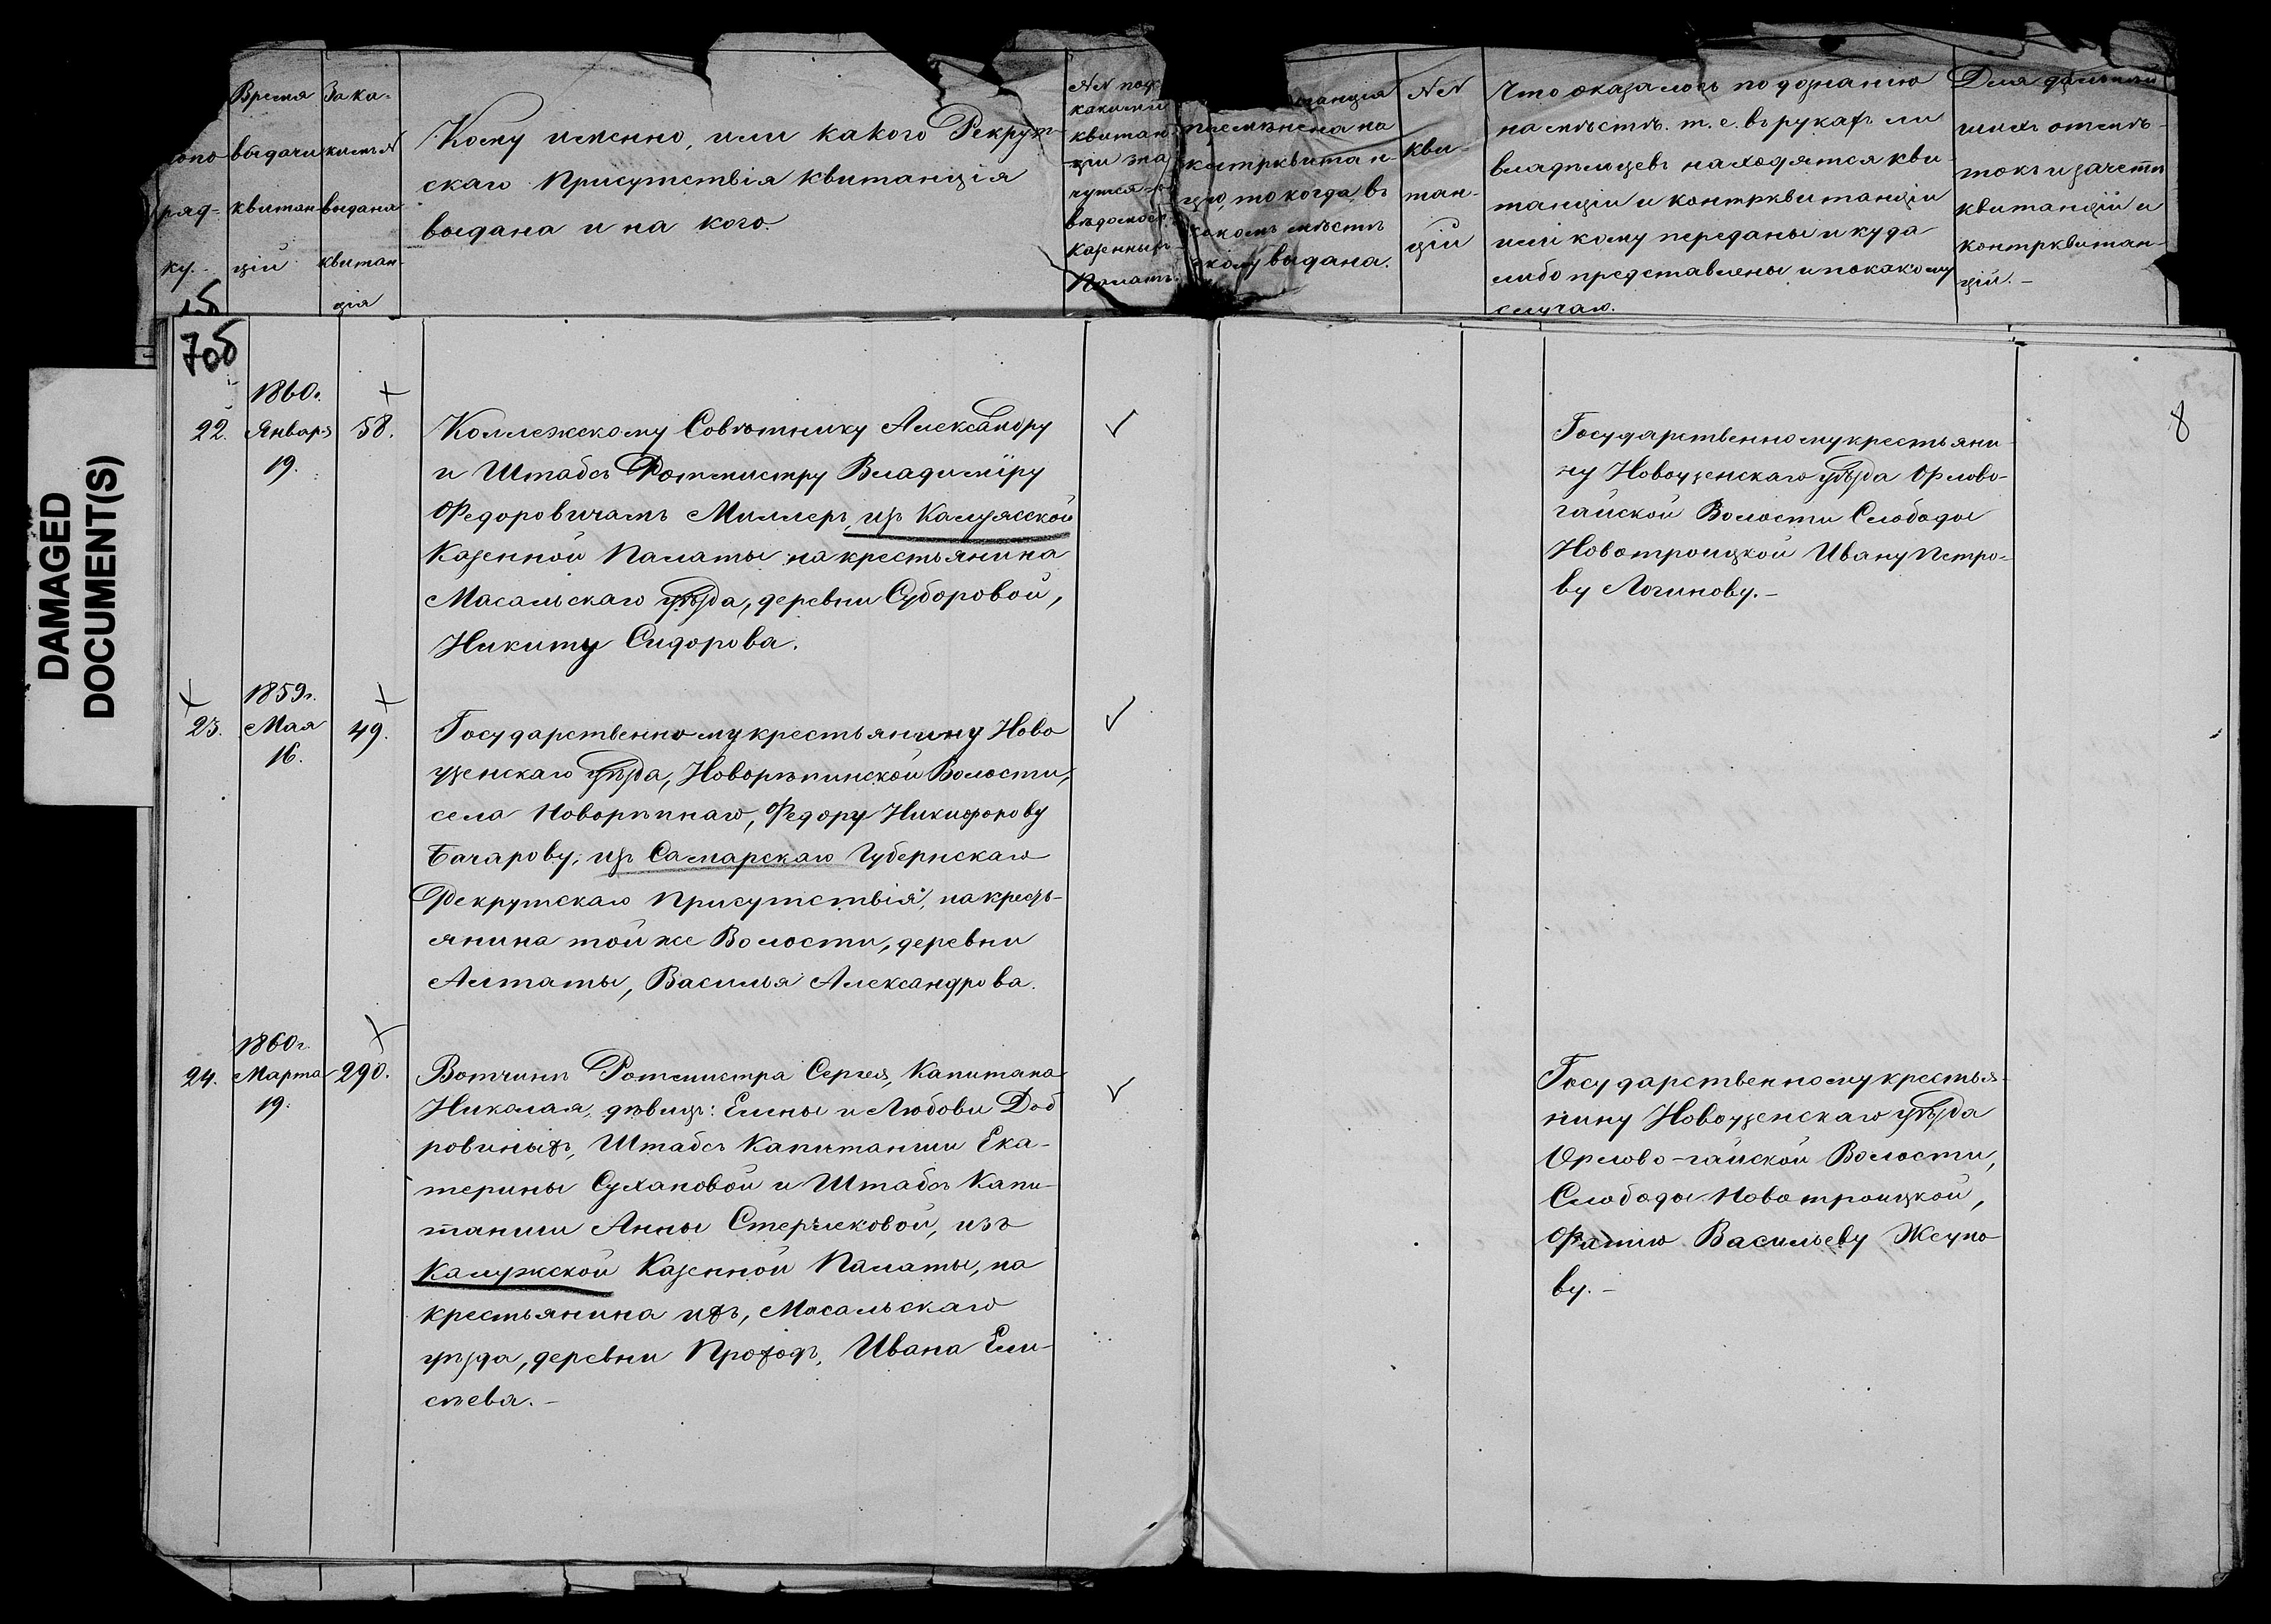 Время
выдачи
квитан-
ціи
Зака-
кимъ №
выдана
квитан-
ція
ряд-
ку.
Кому именно, или какого Рекрут-
скаго Присутствія квитанція
выдана и на кого.
№№ под
какими
квитан-
ціи
Казенныхъ
Палатъ.
на
контрквитан-
цію, то когда, въ
какомъ мѣстѣ
и кому выдана.
№№
кви-
тан-
цій
Что оказалось по дознанію
на мѣстѣ. т. е. въ рукахъ ли
владѣльцевъ находятся кви-
танціи и контрквитанціи
или кому переданы и куда
либо представлены и по какому
случаю.
Для дальнѣй
шихъ отмѣ-
токъ и зачетѣ
квитанцій и
контрквитан-
цій.-
DAMAGED
DOCUMENT(S)
70б
8
22.
1860г.
Января
19.
58.
Коллежскому Совѣтнику Александру
и Штабсъ Ротмистру Владиміру
Федоровичамъ Миллеръ, изъ Калужской
Казенной Палаты на крестьянина
Масальскаго уѣзда, деревни Суборовой,
Никиту Сидорова.
Государственному крестьяни-
ну Новоузенскаго уѣзда Орлово-
гайской Волости Слободы
Новотроицкой Ивану Петро-
ву Логинову.-
23.
1859г.
Мая
16.
49.
Государственному крестьянину Ново
узенскаго уѣзда, Новорѣпинской Волости,
села Новорѣпнаго, Федору Никифорову
Бачарову, изъ Самарскаго Губернскаго
Рекрутскаго Присутствія, на кресть-
янина той же Волости, деревни
Алтаты, Василья Александрова.
24.
1860г.
Марта
19.
290.
Вотчинѣ Ротмистра Сергея, Капитана
Николая, дѣвицъ: Елены и Любови Доб
ровиныхъ, Штабсъ Капитанши Ека-
терины Сухановой и Штабсъ Капи-
танши Анны Стерлековой, изъ
Калужской Казенной Палаты, на
крестьянина ихъ, Мосальскаго
уѣзда, деревни Проходъ, Ивана Ели-
сѣева.-
Государственному крестья-
нину Новоузенскаго уѣзда
Орлово-гайской Волости,
Слободы Новотроицкой,
Васильеву Жеуно
ву.-